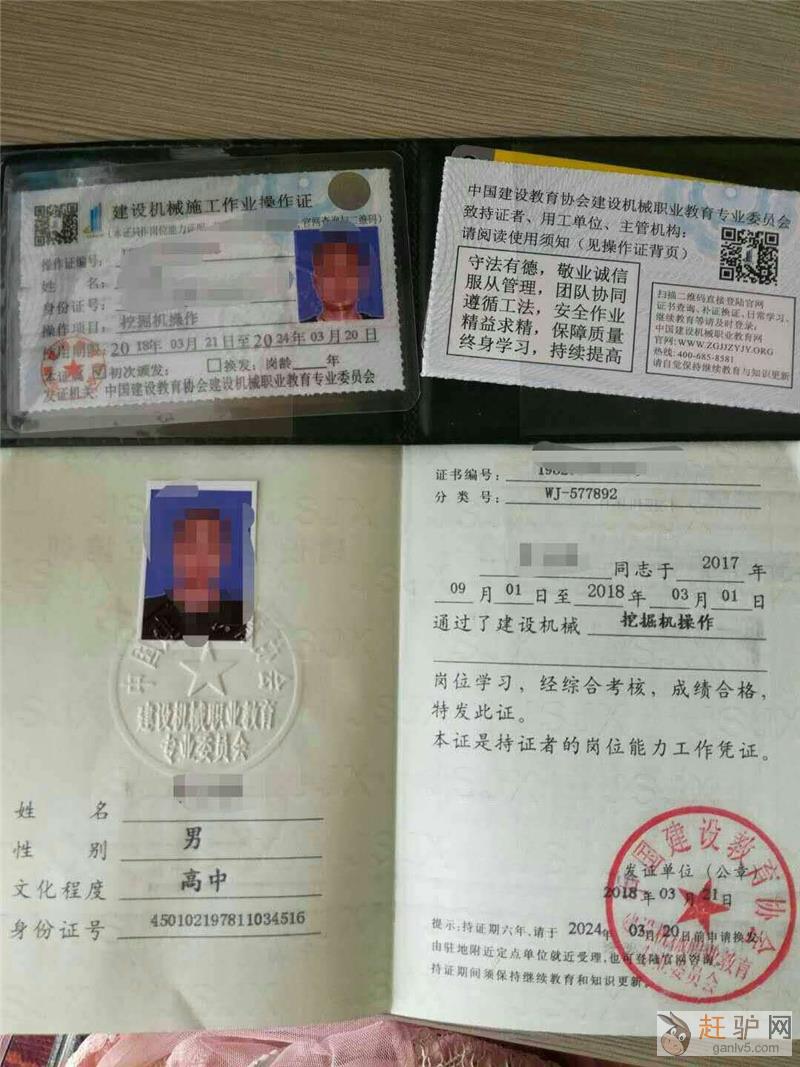 建设机械施工作业操作证
操作证编号:
姓 名:
身份证号:
操作项目: 挖掘机操作
使用期限: 2018年 03月 21日至 2024年 03月 20日
本证属: ☑初次颁发: □换发: 岗龄 年
发证机关: 中国建设教育协会建设机械职业教育专业委员会
中国建设教育协会建设机械职业教育专业委员会
致持证者、用工单位、主管机构:
请阅读使用须知(见操作证背页)
守法有德, 敬业诚信
服从管理, 团队协同
遵循工法, 安全作业
精益求精, 保障质量
终身学习, 持续提高
扫描二维码直接登陆官网
证书查询、补证换证、日常学习、
继续教育等请及时登录:
中国建设机械职业教育网
官网: WWW.ZGJJZYJY.ORG
热线: 400-685-8581
请自觉保持继续教育与知识更新
建设机械职业教育
专业委员会
姓 名
性 别 男
文化程度 高中
身份证号 450102197811034516
证书编号:
分 类 号: WJ-577892
同志于 2017 年
09 月 01 日至 2018 年 03 月 01 日
通过了建设机械 挖掘机操作
岗位学习, 经综合考核, 成绩合格,
特发此证。
本证是持证者的岗位能力工作凭证。
发证单位(公章)
2018 年 03 月 21 日
提示: 持证期六年、请于 2024年 03月 20日前申请换发,
由驻地附近定点单位就近受理, 也可登陆官网咨询。
持证期间须保持继续教育和知识更新。
赶驴网
ganlv5.com